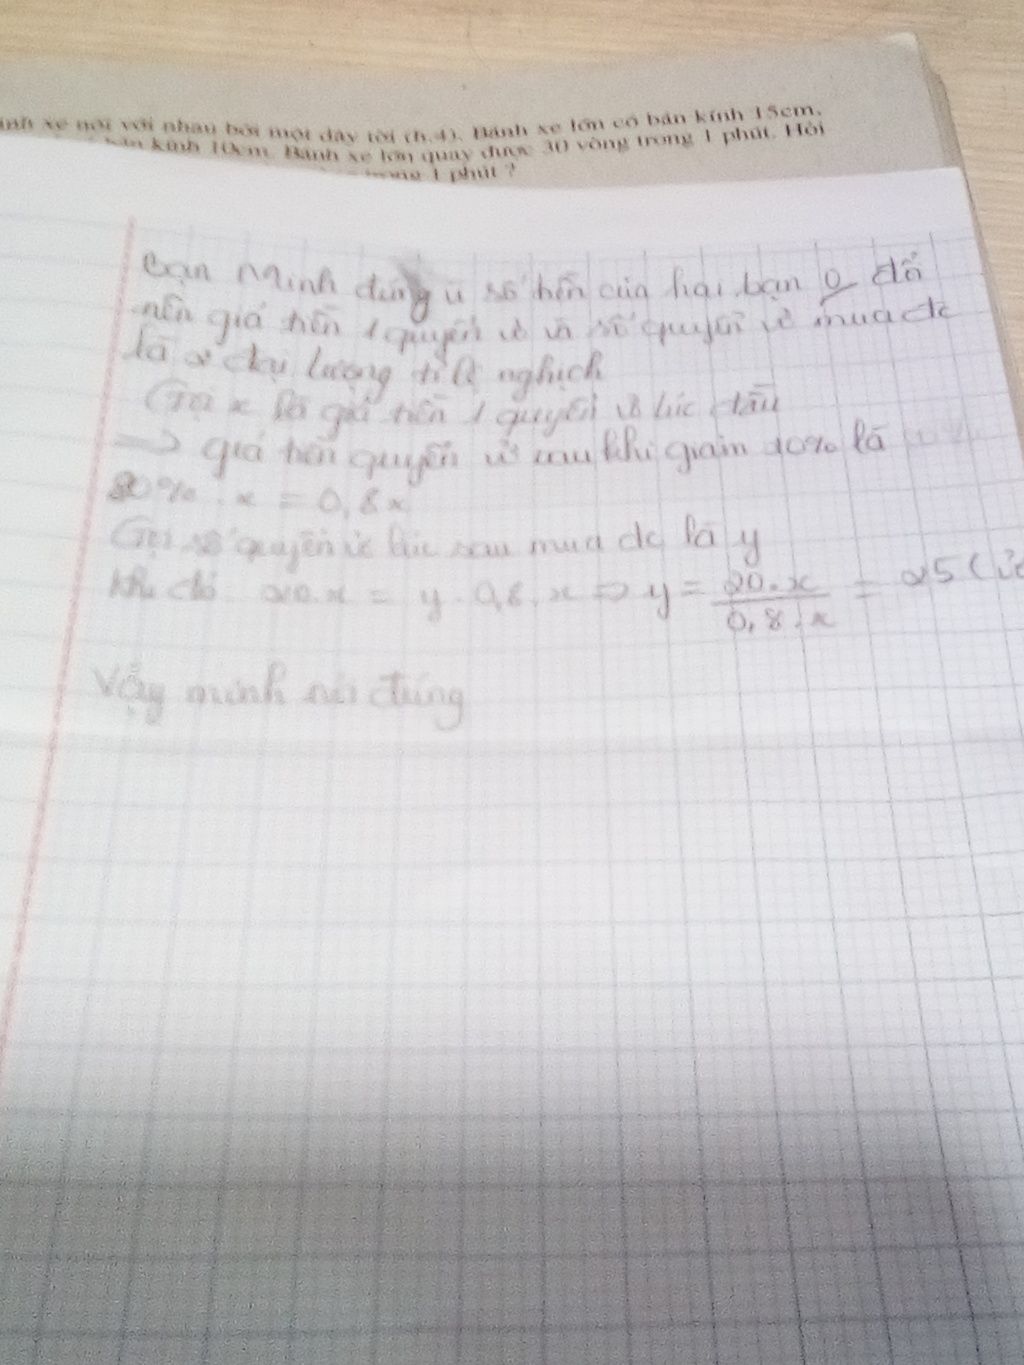 xe nối với nhau bởi một dây tời (h.4). Bánh xe lớn có bán kính 15cm,
bán kính 10cm. Bánh xe lớn quay được 30 vòng trong 1 phút. Hỏi
trong 1 phút ?
Bạn Minh đúng vì số tiền của hai bạn 0 đổi
nên giá tiền 1 quyển vở và số quyển vở mua đc
là 2 đại lượng tỉ lệ nghịch
Gọi x là giá tiền 1 quyển vở lúc đầu
=> giá tiền quyển vở sau khi giảm 20% là
80% . x = 0,8x
Gọi số quyển vở lúc sau mua đc là y
khi đó 20.x = y . 0,8 . x => y = 20.x / 0,8.x = 25 (
Vậy minh nói đúng